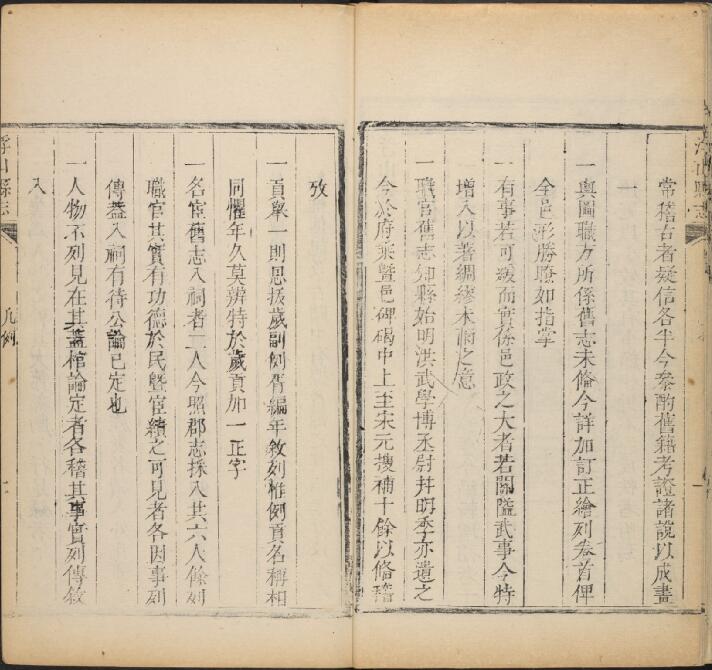 常稽古者疑信各半今叅酌舊籍考證諸說以成畫
一
一輿圖職方所係舊志未備今詳加訂正繪列卷首俾
全邑形勝瞭如指掌
一有事若可緩而實係邑政之大者若關隘武事今特
增入以著綢繆未雨之意
一職官舊志知縣始明洪武學博丞尉幷明季亦遺之
今於府乘暨邑碑碣中上至宋元搜補十餘以俻稽
攷
一貢舉一則恩拔歲副例胥編年敘列惟例貢名稱相
同懼年久莫辨特於歲貢加一正字
一名宦舊志入祠者二人今照郡志採入共六人餘列
職官其實有功德於民暨宦績之可見者各因事列
傳蓋入祠有待公論已定也
一人物不列見在其蓋棺論定者各稽其事實列傳敘
入
浮山縣志
凡例